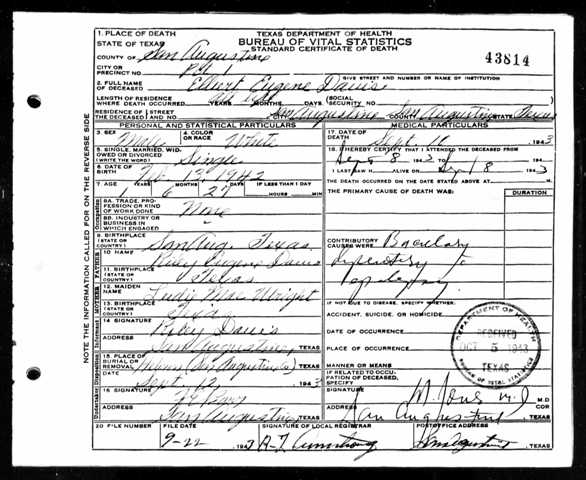 TEXAS DEPARTMENT OF HEALTH
BUREAU OF VITAL STATISTICS
STANDARD CERTIFICATE OF DEATH
43814
1. PLACE OF DEATH
STATE OF TEXAS
COUNTY OF San Augustine
CITY OR PRECINCT NO.
GIVE STREET AND NUMBER OR NAME OF INSTITUTION
2. FULL NAME OF DECEASED Elbert Eugene Davis
LENGTH OF RESIDENCE WHERE DEATH OCCURRED YEARS MONTHS DAYS SOCIAL SECURITY NO.
RESIDENCE OF THE DECEASED STREET AND NO. San Augustine COUNTY San Augustine STATE Texas
PERSONAL AND STATISTICAL PARTICULARS
MEDICAL PARTICULARS
3. SEX 4. COLOR OR RACE White
17. DATE OF DEATH Sept 1943
5. SINGLE, MARRIED, WIDOWED OR DIVORCED (WRITE THE WORD) Single
18. I HEREBY CERTIFY THAT I ATTENDED THE DECEASED FROM
Sept 8 1943 Sept 8 194
6. DATE OF BIRTH 1942
I LAST SAW H ALIVE ON 194
7. AGE 1 6 IF LESS THAN 1 DAY HOURS MIN
THE DEATH OCCURRED ON THE DATE STATED ABOVE AT M.
THE PRIMARY CAUSE OF DEATH WAS: DURATION
8A. TRADE, PROFESSION OR KIND OF WORK DONE None
8B. INDUSTRY OR BUSINESS IN WHICH ENGAGED
9. BIRTHPLACE (STATE OR COUNTRY) San Aug. Texas
CONTRIBUTORY CAUSES WERE: Bacillary
10 NAME Riley Eugene Davis
11. BIRTHPLACE (STATE OR COUNTRY) Texas
12. MAIDEN NAME Mae Wright
IF NOT DUE TO DISEASE, SPECIFY WHETHER:
13. BIRTHPLACE (STATE OR COUNTRY) Texas
ACCIDENT, SUICIDE, OR HOMICIDE
14 SIGNATURE Riley Davis
DATE OF OCCURRENCE
ADDRESS San Augustine, TEXAS
PLACE OF OCCURRENCE
15. PLACE OF BURIAL OR REMOVAL (San Augustine Co) TEXAS
MANNER OR MEANS
DATE Sept. 12, 1943
IF RELATED TO OCCUPATION OF DECEASED, SPECIFY
16. SIGNATURE
Jones M.D
M.D. COR
ADDRESS San Augustine TEXAS
ADDRESS San Augustine TEXAS
20 FILE NUMBER FILE DATE SIGNATURE OF LOCAL REGISTRAR POSTOFFICE ADDRESS
9-22 1943 A-T Armstrong San Augustine, TEXAS
DEPARTMENT OF HEALTH
RECEIVED
OCT 5 1943
TEXAS
BUREAU OF VITAL STATISTICS
NOTE THE INFORMATION CALLED FOR ON THE REVERSE SIDE
Undertaker Disposition Informant MOTHER FATHER Occupation